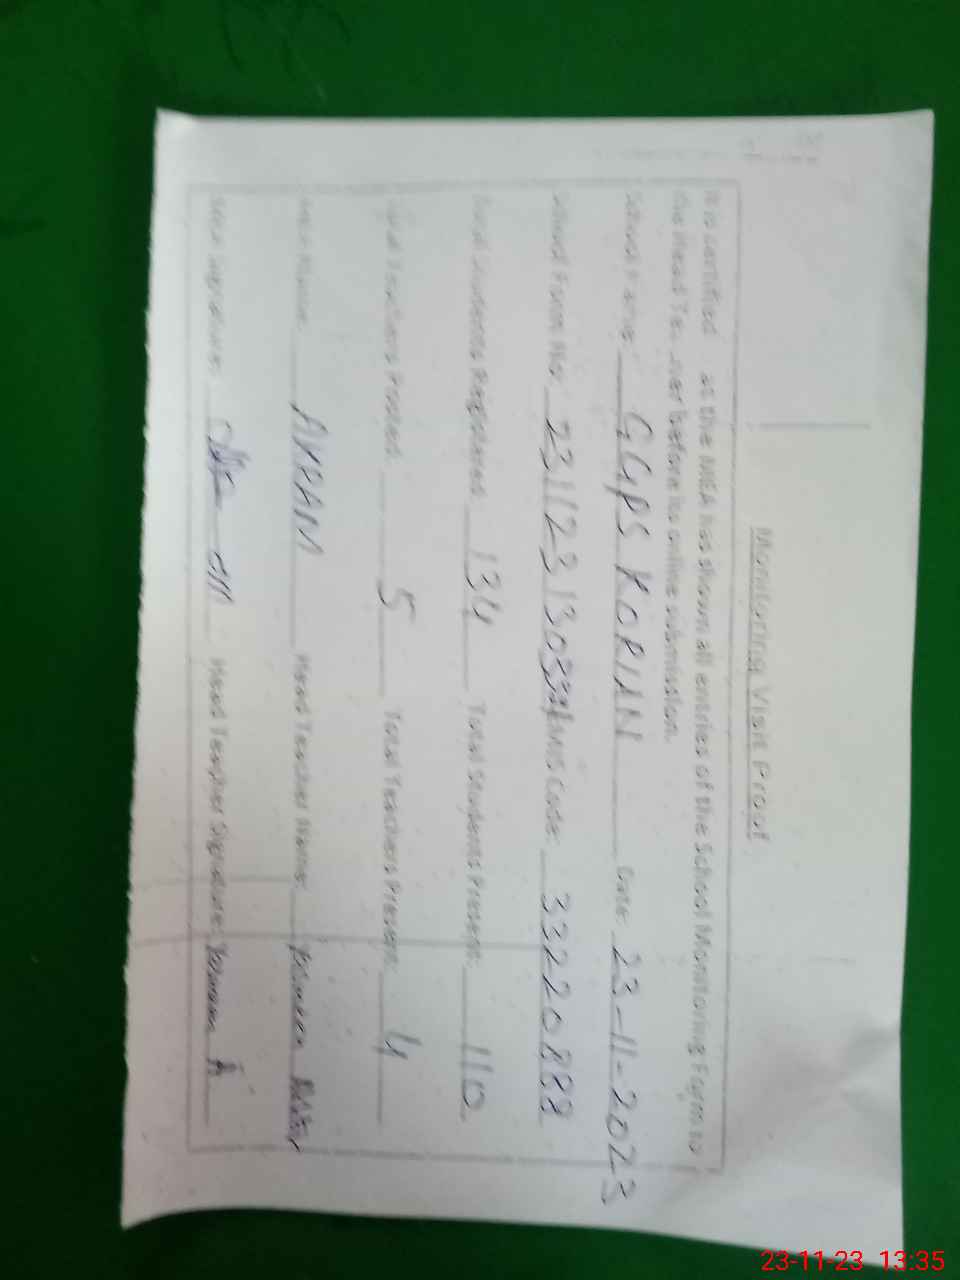 Monitoring Visit Proof
It is certified at the MEA has shown all entries of the School Monitoring Form to
the Head Te before its online submission.
School Name: GGPS KORIAN Date: 23-11-2023
School Form No: EMIS Code: 33220888
Total Students Registered: 134 Total Students Present: 110
Total Teachers Posted: 5 Total Teachers Present: 4
MEA Name: AKRAM Head Teacher Name:
MEA Signature: Head Teacher Signature:
23-11-23 13:35